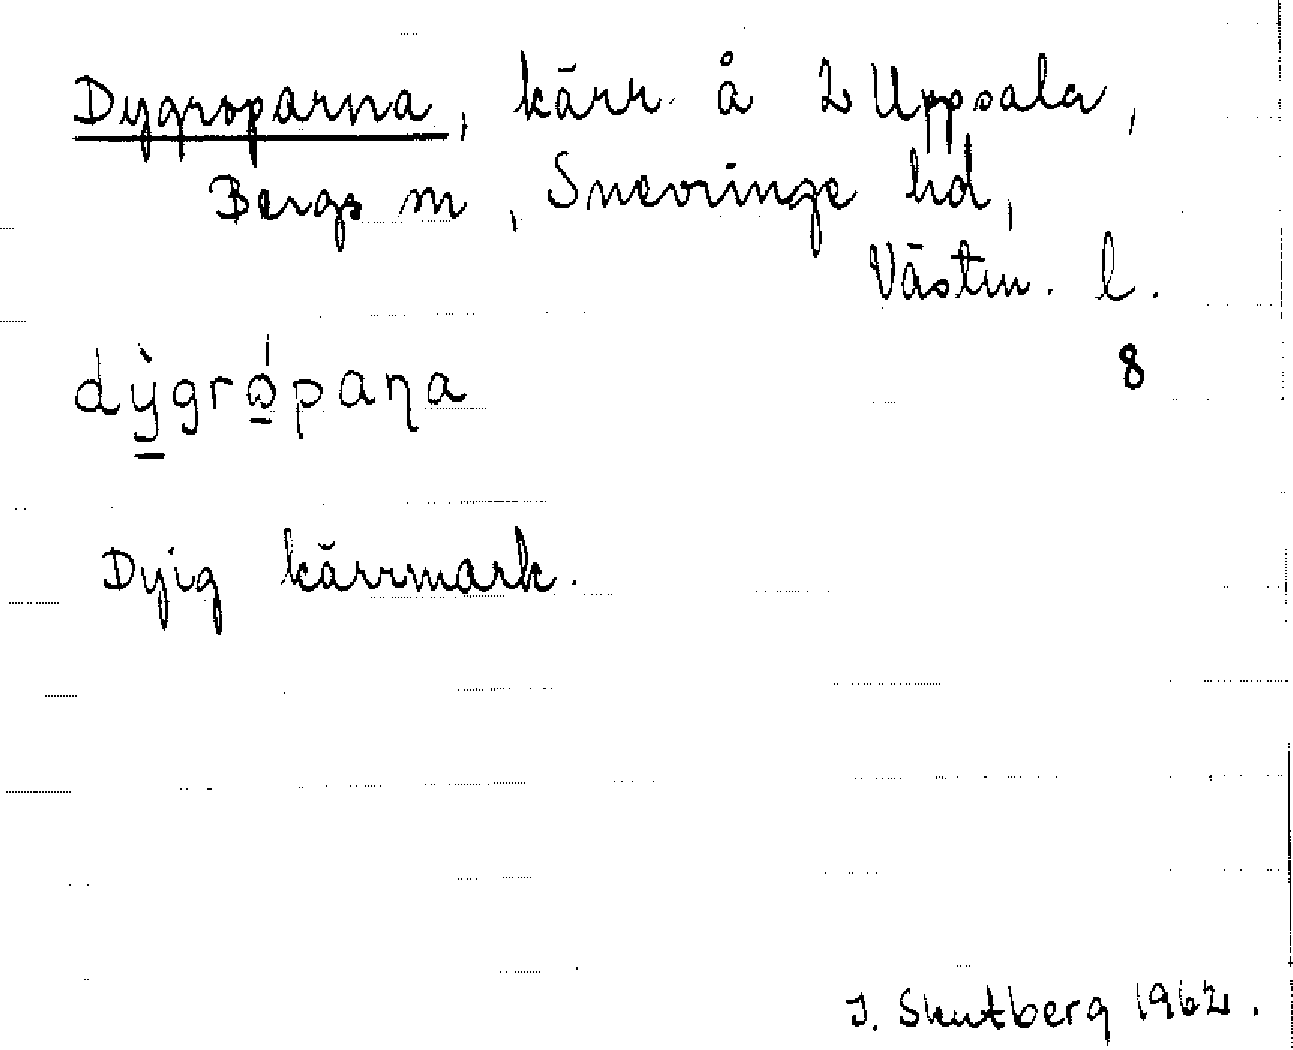 Dygroparna, kärr å 2 Uppsala,
Bergs sn, Snevringe hd,
Västm. l.
8
dỳgrǿpaɳa
Dyig kärrmark.
J. Skutberg 1962.